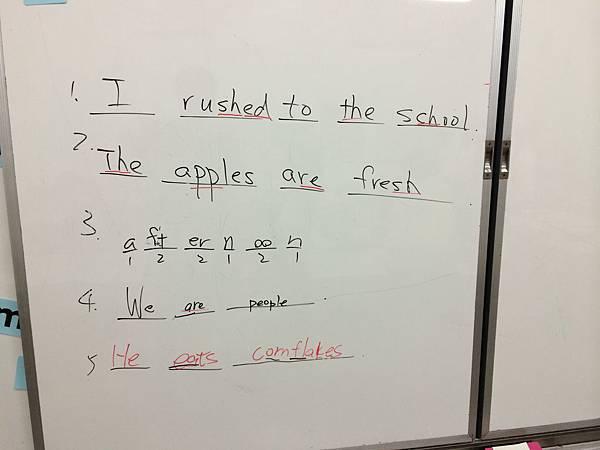 1. I rushed to the school.
2. The apples are fresh
3. a ft er n oo n
1 2 2 1 2 1
4. We are people.
5 He eats cornflakes.
m